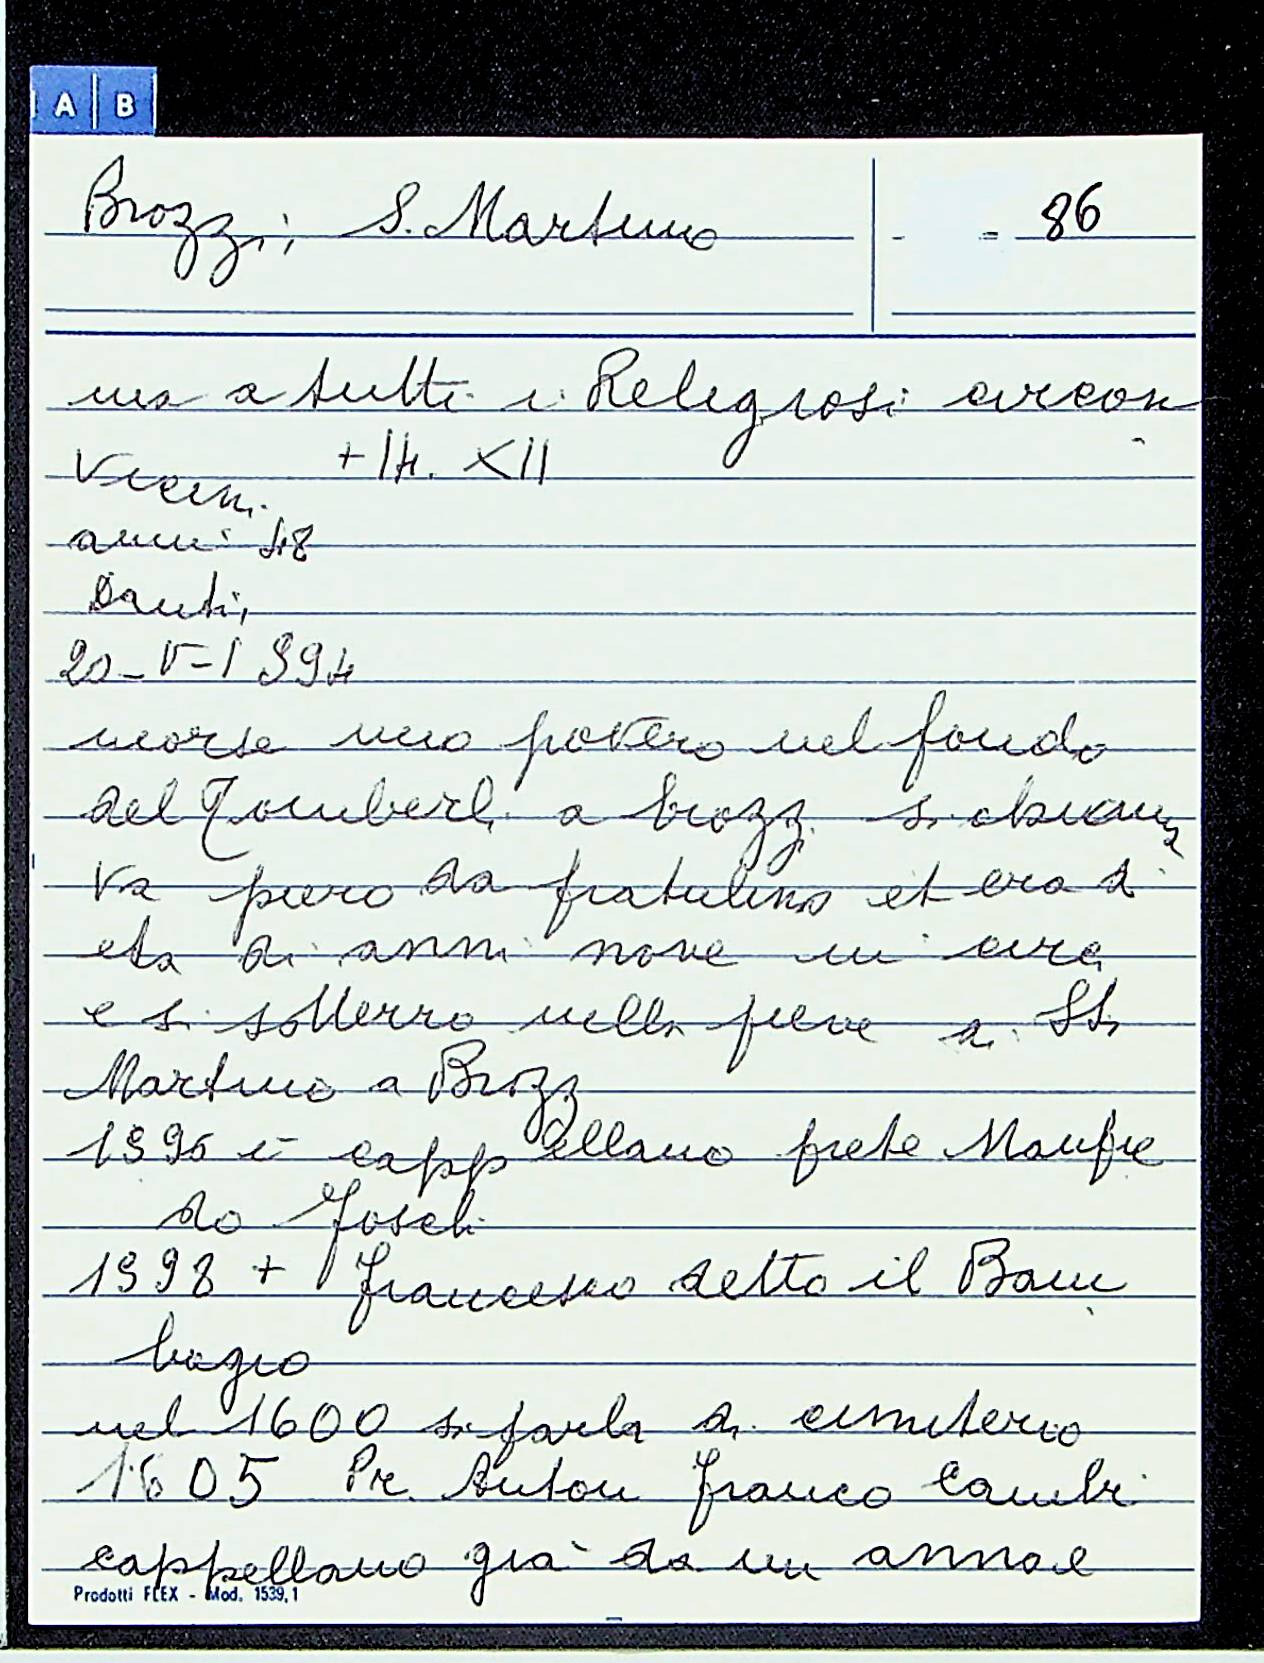 A B
Brozzi, S. Martino
- = 86
ma a tutti i Religiosi circon
vicini. +14. XII
anni 48
Danti,
20-V-1594
morse uno povero nel fondo
del Zomberli a brozzi si chiama
va piero da fratulino et era di
eta di anni nove in circa
e si sotterro nella pieve di St.
Martino a Brozzi
1596 è cappellano prete Manfre
do Foschi
1598 + Francesco detto il Bam
bagio
nel 1600 si parla di cimiterio
1605 Pr. Anton Franco Cambi
cappellano già da un anno e
Prodotti FLEX - Mod. 1539,1